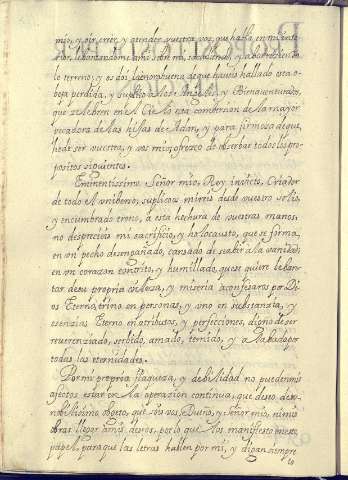 mio, y oir, creer, y atender vuestra voz, que habla en mi inte
rior, lebantandome sobre mi, todo criado, y aborreciendo
lo terreno; y os doi la enorabuena de que haveis hallado esta o
beja perdida, y suplico à los Angeles, y Bienaventurados,
que celebren en el Cielo esta combersion de la mayor
pecadora de las hijas de Adan, y para firmesa de que,
hede ser vuestra, y vos mio ofrezco de obserbar todos los pro
positos siguientes.
Eminentissimo Señor mio, Rey invicto, Criador
de todo el unibersso; suplicoos mireis desde vuestro solio,
y encumbrado trono, à esta hechura de vuestras manos:
no desprecieis mi sacrificio, y holocausto, que se forma,
en un pecho desengañado, cansado de subir à la vanidad,
en un corazon contrito, y humillado, que se quiere leban
tar de su propria vileza, y miseria à confesaros por Di
os Eterno, trino en personas, y uno en substancia, y
esencia: Eterno en atributos, y perfecciones, digno de ser
reverenziado, serbido, amado, temido, y alabado por
todas las eternidades.
Por mi propria flaqueza, y debilidad no pueden mis
afectos estar en la operacion continua, que deseo, de no
bilissimo objeto, que sois vos, ò Dueño, y Señor mio, ni mis
obras llegar à mis deseos, por lo que los manifiesto en este
papel, para que las letras hablen por mi, y digan siempre
lo